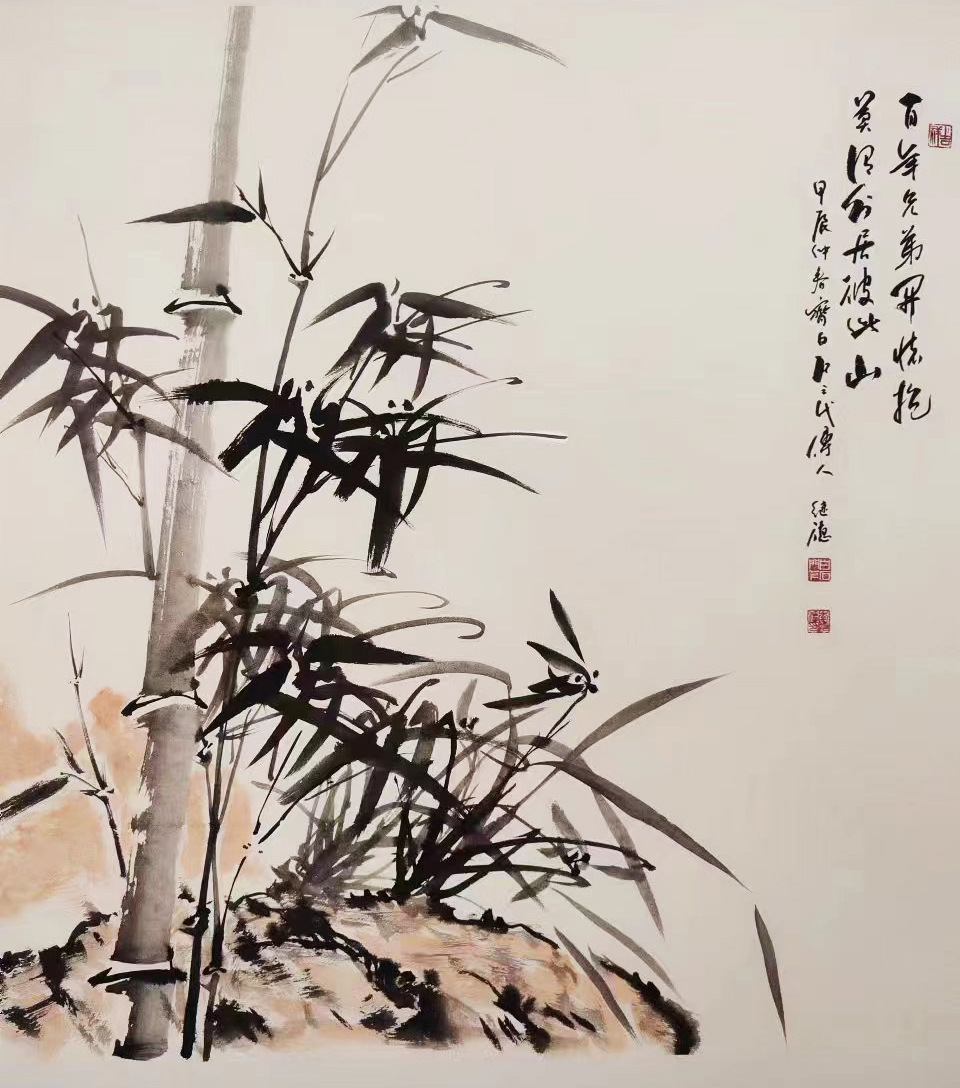 百年兄弟開懷抱
莫謂分居彼此山
甲辰仲春齊白石三代傳人 继德